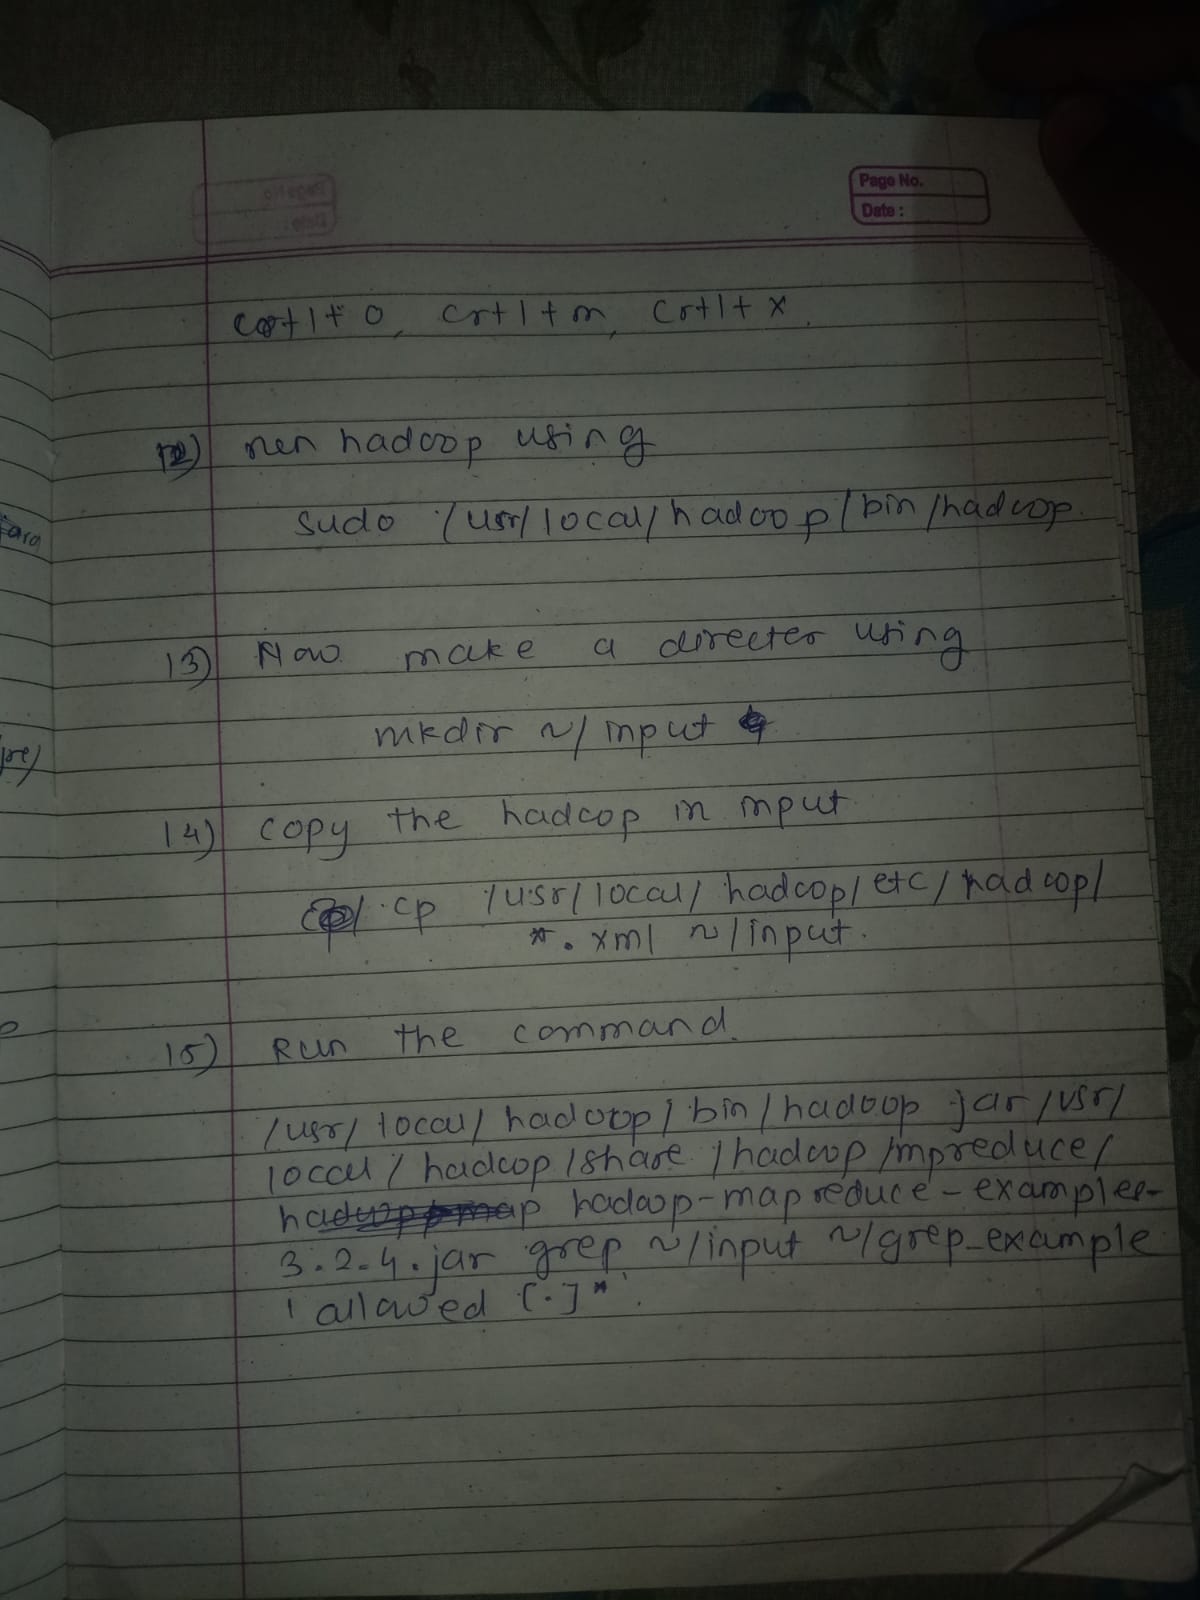 Page No.
Date :
Crtl + o, Crtl + m, Crtl + x.
12) run hadoop using
sudo /usr/local/hadoop/bin/hadoop.
13) Now make a directer using
mkdir ~/input
14) copy the hadoop in input
cp /usr/local/hadoop/etc/hadoop/
*.xml ~/input.
15) Run the command.
/usr/local/hadoop/bin/hadoop jar /usr/
local/hadoop/share/hadoop/mpreduce/
hadoop-mapreduce-examples-
3.2.4.jar grep ~/input ~/grep_example
'allowed [.]*'.